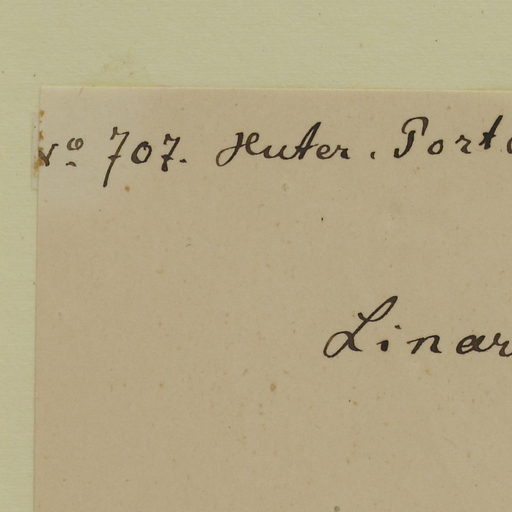 Nº 707. Huter. Porto
Linar